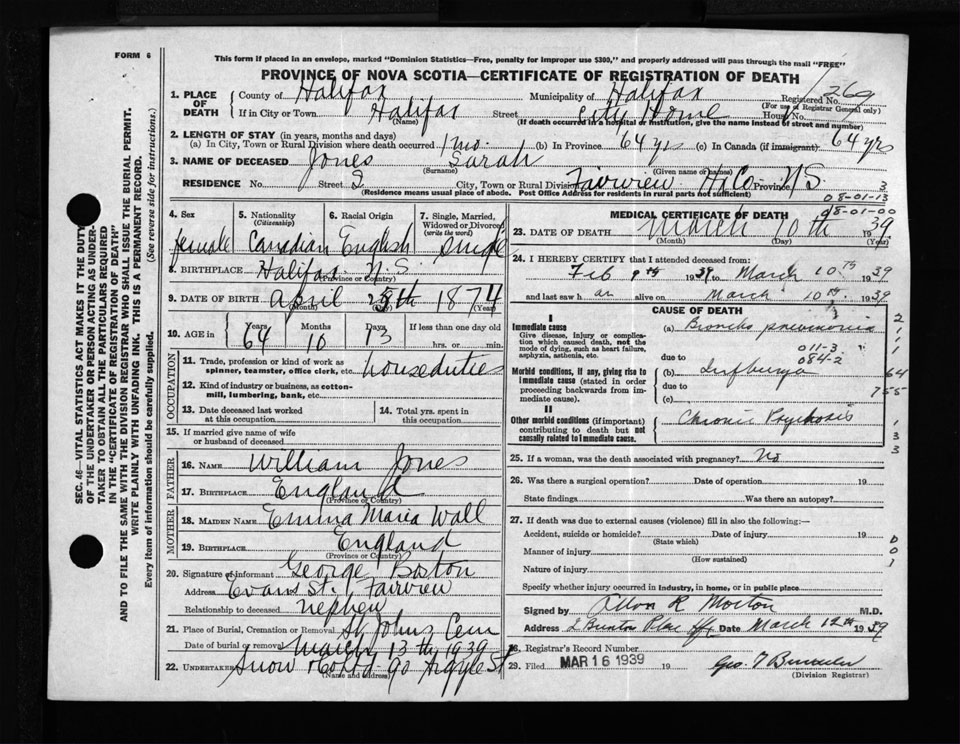 FORM 6
This form if placed in an envelope, marked "Dominion Statistics—Free, penalty for improper use $300," and properly addressed will pass through the mail "FREE"
PROVINCE OF NOVA SCOTIA—CERTIFICATE OF REGISTRATION OF DEATH
SEC. 46—VITAL STATISTICS ACT MAKES IT THE DUTY
OF THE UNDERTAKER OR PERSON ACTING AS UNDER-
TAKER TO OBTAIN ALL THE PARTICULARS REQUIRED
IN THE "CERTIFICATE OF REGISTRATION OF DEATH"
AND TO FILE THE SAME WITH THE DIVISION REGISTRAR WHO SHALL ISSUE THE BURIAL PERMIT.
WRITE PLAINLY WITH UNFADING INK. THIS IS A PERMANENT RECORD.
Every item of information should be carefully supplied. (See reverse side for instructions.)
1. PLACE OF DEATH County of Halifax Municipality of Halifax Registered No. 269
(For use of Registrar General only)
If in City or Town Halifax Street City Home House No.
(Name) (If death occurred in a hospital or institution, give the name instead of street and number)
2. LENGTH OF STAY (in years, months and days)
(a) In City, Town or Rural Division where death occurred 1 mo. (b) In Province 64 yrs (c) In Canada (if immigrant) 64 yrs
3. NAME OF DECEASED Jones Sarah
(Surname) (Given name or names)
RESIDENCE No. Street City, Town or Rural Division Fairview Hx Co. Province N S 3
(Residence means usual place of abode. Post Office Address for residents in rural parts not sufficient)
08-01-13
08-01-00
4. Sex female
5. Nationality (Citizenship) Canadian
6. Racial Origin English
7. Single, Married, Widowed or Divorced (write the word) Single
8. BIRTHPLACE Halifax N.S.
(Province or Country)
9. DATE OF BIRTH April 28th 1874
(Month) (Year)
10. AGE in Years 64 Months 10 Days 13 If less than one day old hrs. or min.
OCCUPATION
11. Trade, profession or kind of work as spinner, teamster, office clerk, etc. houseduties
12. Kind of industry or business, as cotton-mill, lumbering, bank, etc.
13. Date deceased last worked at this occupation
14. Total yrs. spent in this occupation
15. If married give name of wife or husband of deceased
FATHER
16. NAME William Jones
17. BIRTHPLACE England
(Province or Country)
MOTHER
18. MAIDEN NAME Emma Maria Wall
19. BIRTHPLACE England
(Province or Country)
20. Signature of informant George Boston
Address Evans St. Fairview
Relationship to deceased nephew
21. Place of Burial, Cremation or Removal St Johns Cem
Date of burial or removal March 13th 1939
22. UNDERTAKER Snow & Co Ltd 90 Argyle St
(Name and address)
MEDICAL CERTIFICATE OF DEATH
23. DATE OF DEATH March 10th 1939
(Month) (Day) (Year)
24. I HEREBY CERTIFY that I attended deceased from:
Feb 9th 1939 to March 10th 1939
and last saw h er alive on March 10th 1939
CAUSE OF DEATH
I
Immediate cause
Give disease, injury or complication which caused death, not the mode of dying, such as heart failure, asphyxia, asthenia, etc.
(a) Broncho pneumonia
due to 011-3
084-2
Morbid conditions, if any, giving rise to immediate cause (stated in order proceeding backwards from immediate cause).
(b) Influenza
due to
(c)
II
Other morbid conditions (if important) contributing to death but not causally related to immediate cause.
Chronic Psychosis
2
1
1
64
755
1
3
3
25. If a woman, was the death associated with pregnancy? No
26. Was there a surgical operation? Date of operation 19
State findings Was there an autopsy?
27. If death was due to external causes (violence) fill in also the following:—
Accident, suicide or homicide? Date of injury 19
(State which)
Manner of injury
(How sustained)
Nature of injury
Specify whether injury occurred in industry, in home, or in public place
0
0
1
Signed by R Morton M.D.
Address Place Hfx Date March 12th 1939
28. Registrar's Record Number
29. Filed MAR 16 1939 19 Geo. T
(Division Registrar)